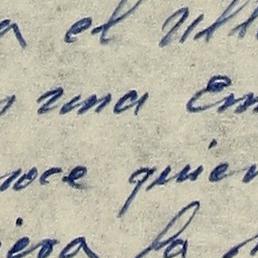 a el ult
y una Em
noce quien
iera la